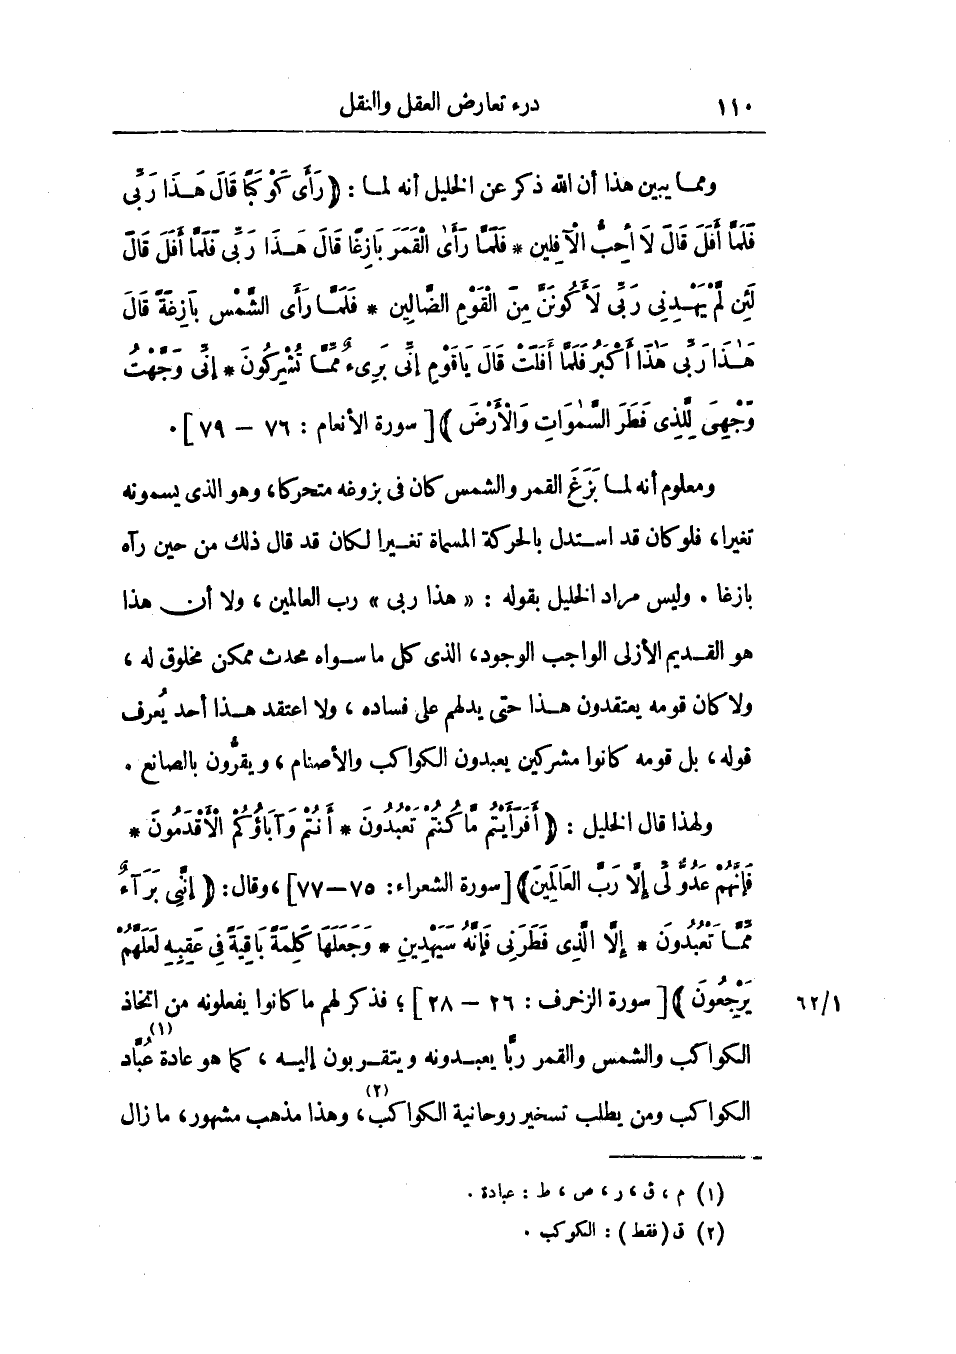 ١١٠ درء تعارض العقل والنقل
ومما يبين هذا أن الله ذكر عن الخليل أنه لما : ﴿ رَأَى كَوْكَبًا قَالَ هَـذَا رَبِّى
فَلَمَّا أَفَلَ قَالَ لَا أُحِبُّ الْآفِلِين * فَلَمَّا رَأَىٰ الْقَمَرَ بَازِغًا قَالَ هَـذَا رَبِّى فَلَمَّا أَفَلَ قَالَ
لَئِن لَّمْ يَهْدِنِى رَبِّى لَأَكُونَنَّ مِنَ الْقَوْمِ الضَّالِين * فَلَمَّا رَأَى الشَّمْس بَازِغَةً قَالَ
هَـٰذَا رَبِّى هَـٰذَا أَكْبَرُ فَلَمَّا أَفَلَتْ قَالَ يَاقَوْمِ إِنِّى بَرِىءٌ مِّمَّا تُشْرِكُونَ * إِنِّى وَجَّهْتُ
وَجْهِىَ لِلَّذِى فَطَرَ السَّمٰوَاتِ وَالْأَرْضَ ﴾ [ سورة الأنعام : ٧٦ – ٧٩ ] .
ومعلوم أنه لما بَزَغَ القمر والشمس كان فى بزوغه متحركا، وهو الذى يسمونه
تغيرا، فلو كان قد استدل بالحركة المسماة تغيرا لكان قد قال ذلك من حين رآه
بازغا . وليس مراد الخليل بقوله : « هذا ربى » رب العالمين ، ولا أن هذا
هو القديم الأزلى الواجب الوجود، الذى كل ما سواه محدث ممكن مخلوق له ،
ولا كان قومه يعتقدون هذا حتى يدلهم على فساده ، ولا اعتقد هذا أحد يُعرف
قوله، بل قومه كانوا مشركين يعبدون الكواكب والأصنام ، ويقرُّون بالصانع .
ولهذا قال الخليل : ﴿ أَفَرَأَيْتُم مَّا كُنتُمْ تَعْبُدُونَ * أَنتُمْ وَآبَاؤُكُمُ الْأَقْدَمُونَ *
فَإِنَّهُمْ عَدُوٌّ لِّى إِلَّا رَبَّ العَالَمِينَ ﴾ [سورة الشعراء: ٧٥–٧٧] ، وقال: ﴿ إِنَّنِى بَرَآءٌ
مِّمَّا تَعْبُدُونَ * إِلَّا الَّذِى فَطَرَنِى فَإِنَّهُ سَيَهْدِين * وَجَعَلَهَا كَلِمَةً بَاقِيَةً فِى عَقِبِهِ لَعَلَّهُمْ
يَرْجِعُونَ ﴾ [ سورة الزخرف : ٢٦ – ٢٨ ] ؛ فذكر لهم ما كانوا يفعلونه من اتخاذ ٦٢/١
الكواكب والشمس والقمر ربًّا يعبدونه ويتقربون إليه ، كما هو عادة عُبَّاد (١)
الكواكب ومن يطلب تسخير روحانية الكواكب (٢)، وهذا مذهب مشهور، ما زال
(١) م ، ق ، ر ، ص ، ط : عبادة .
(٢) ق (فقط) : الكوكب .